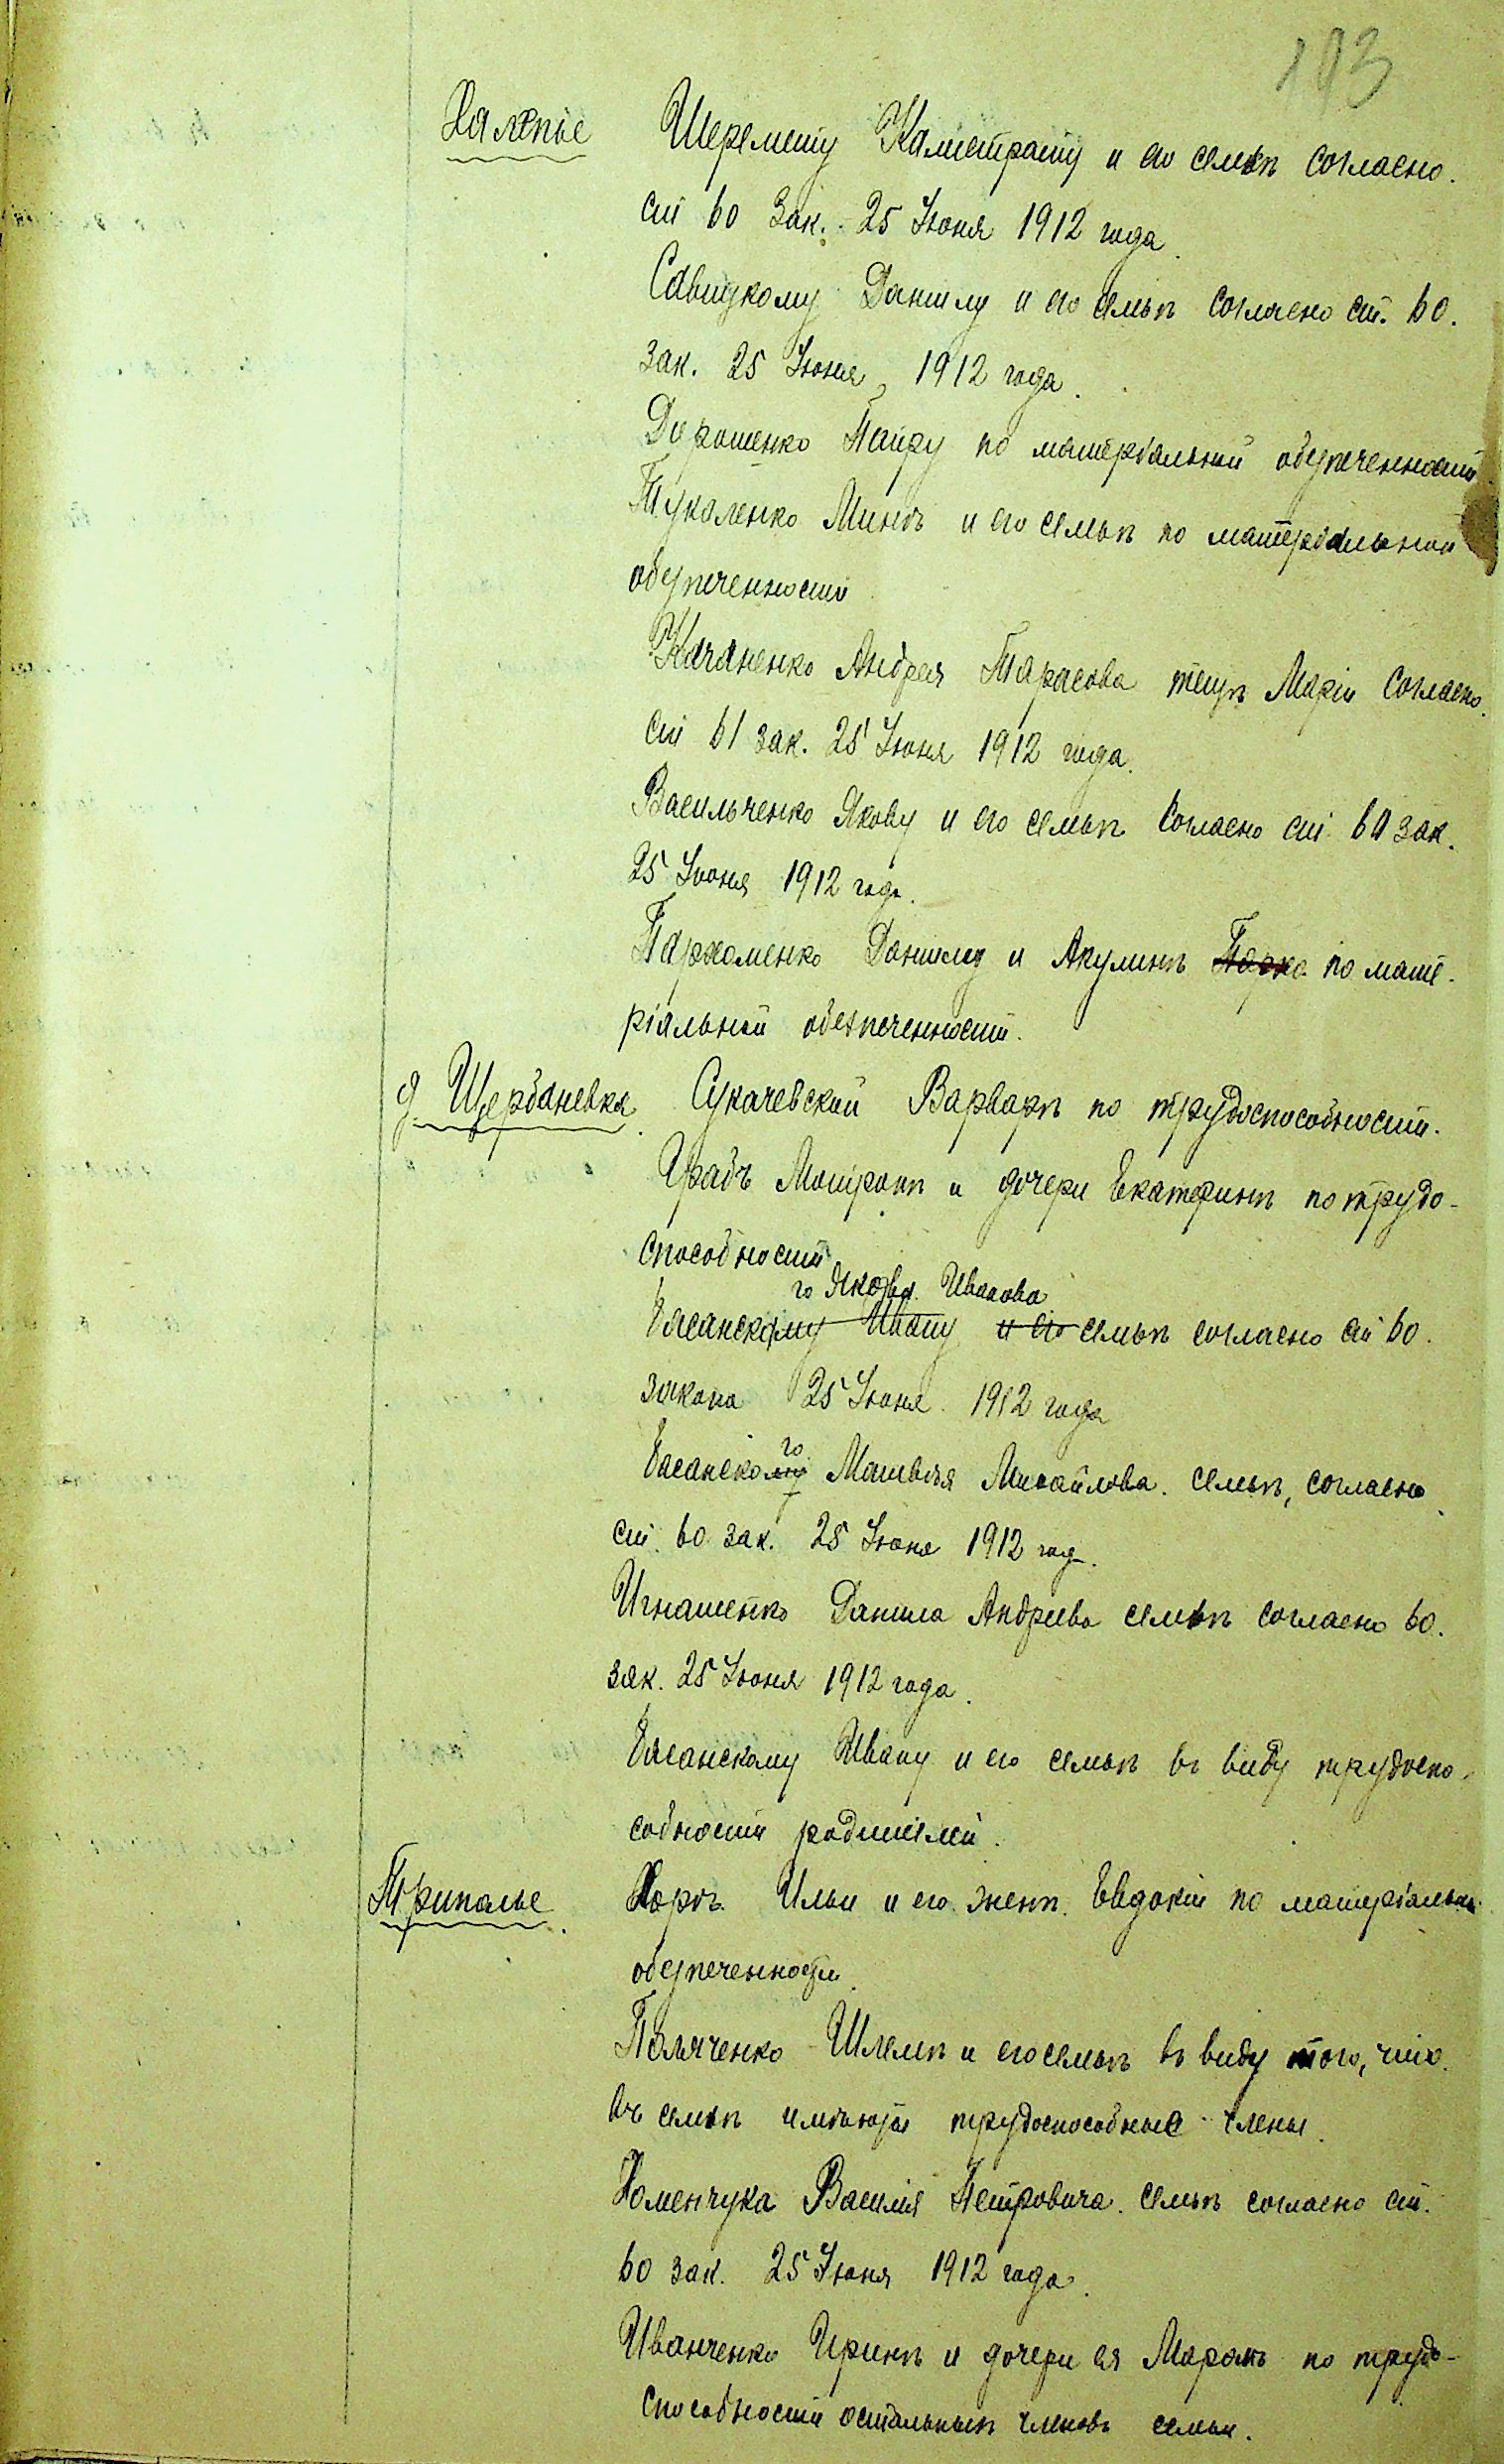 193
Халепье Шеремету Калистрату и его семьѣ согласно.
ст 60 Зак. 25 Июня 1912 года.
Савицкому Данилу и его семьѣ согласно ст. 60.
Зак. 25 Июня 1912 года.
Дорошенко Петру по матеріальной обезпеченности
Туколенко Минѣ и его семьѣ по матеріальной
обезпеченности
Качаненко Андрея Тарасова тещѣ Маріи Согласно.
ст 61 зак. 25 Июня 1912 года.
Васильченко Якову и его семьѣ Согласно ст 60 зак.
25 Июня 1912 года.
Пархоменко Данилу и Акулинѣ по мате-
ріальной обезпеченности.
д. Щербаневка. Сукачевской Варварѣ по трудоспособности.
Грабъ Мотронѣ и дочери Екатеринѣ по трудо-
способности
го Якова Иванова
Басанскому Ивану и его семьѣ согласно ст 60.
закона 25 Июня 1912 года
го
Басанскому Матвѣя Михайлова. семьѣ, согласно
ст. 60 зак. 25 Июня 1912 год.
Игнатенко Данила Андреева семьѣ согласно 60.
зак. 25 Июня 1912 года.
Басанскому Ивану и его семьѣ въ виду трудоспо-
собности родителей.
Триполье. Хоръ Ильи и его женѣ. Евдокіи по матеріальной
обезпеченности.
Поляченко Шлемѣ и его семьѣ въ виду того, что.
въ семьѣ имѣются трудоспособные члены.
Хоменчука Василія Петровича. семьѣ согласно ст.
60 зак. 25 Июня 1912 года.
Иванченко Иринѣ и дочери ея по трудо-
способности остальныхъ членовъ семьи.